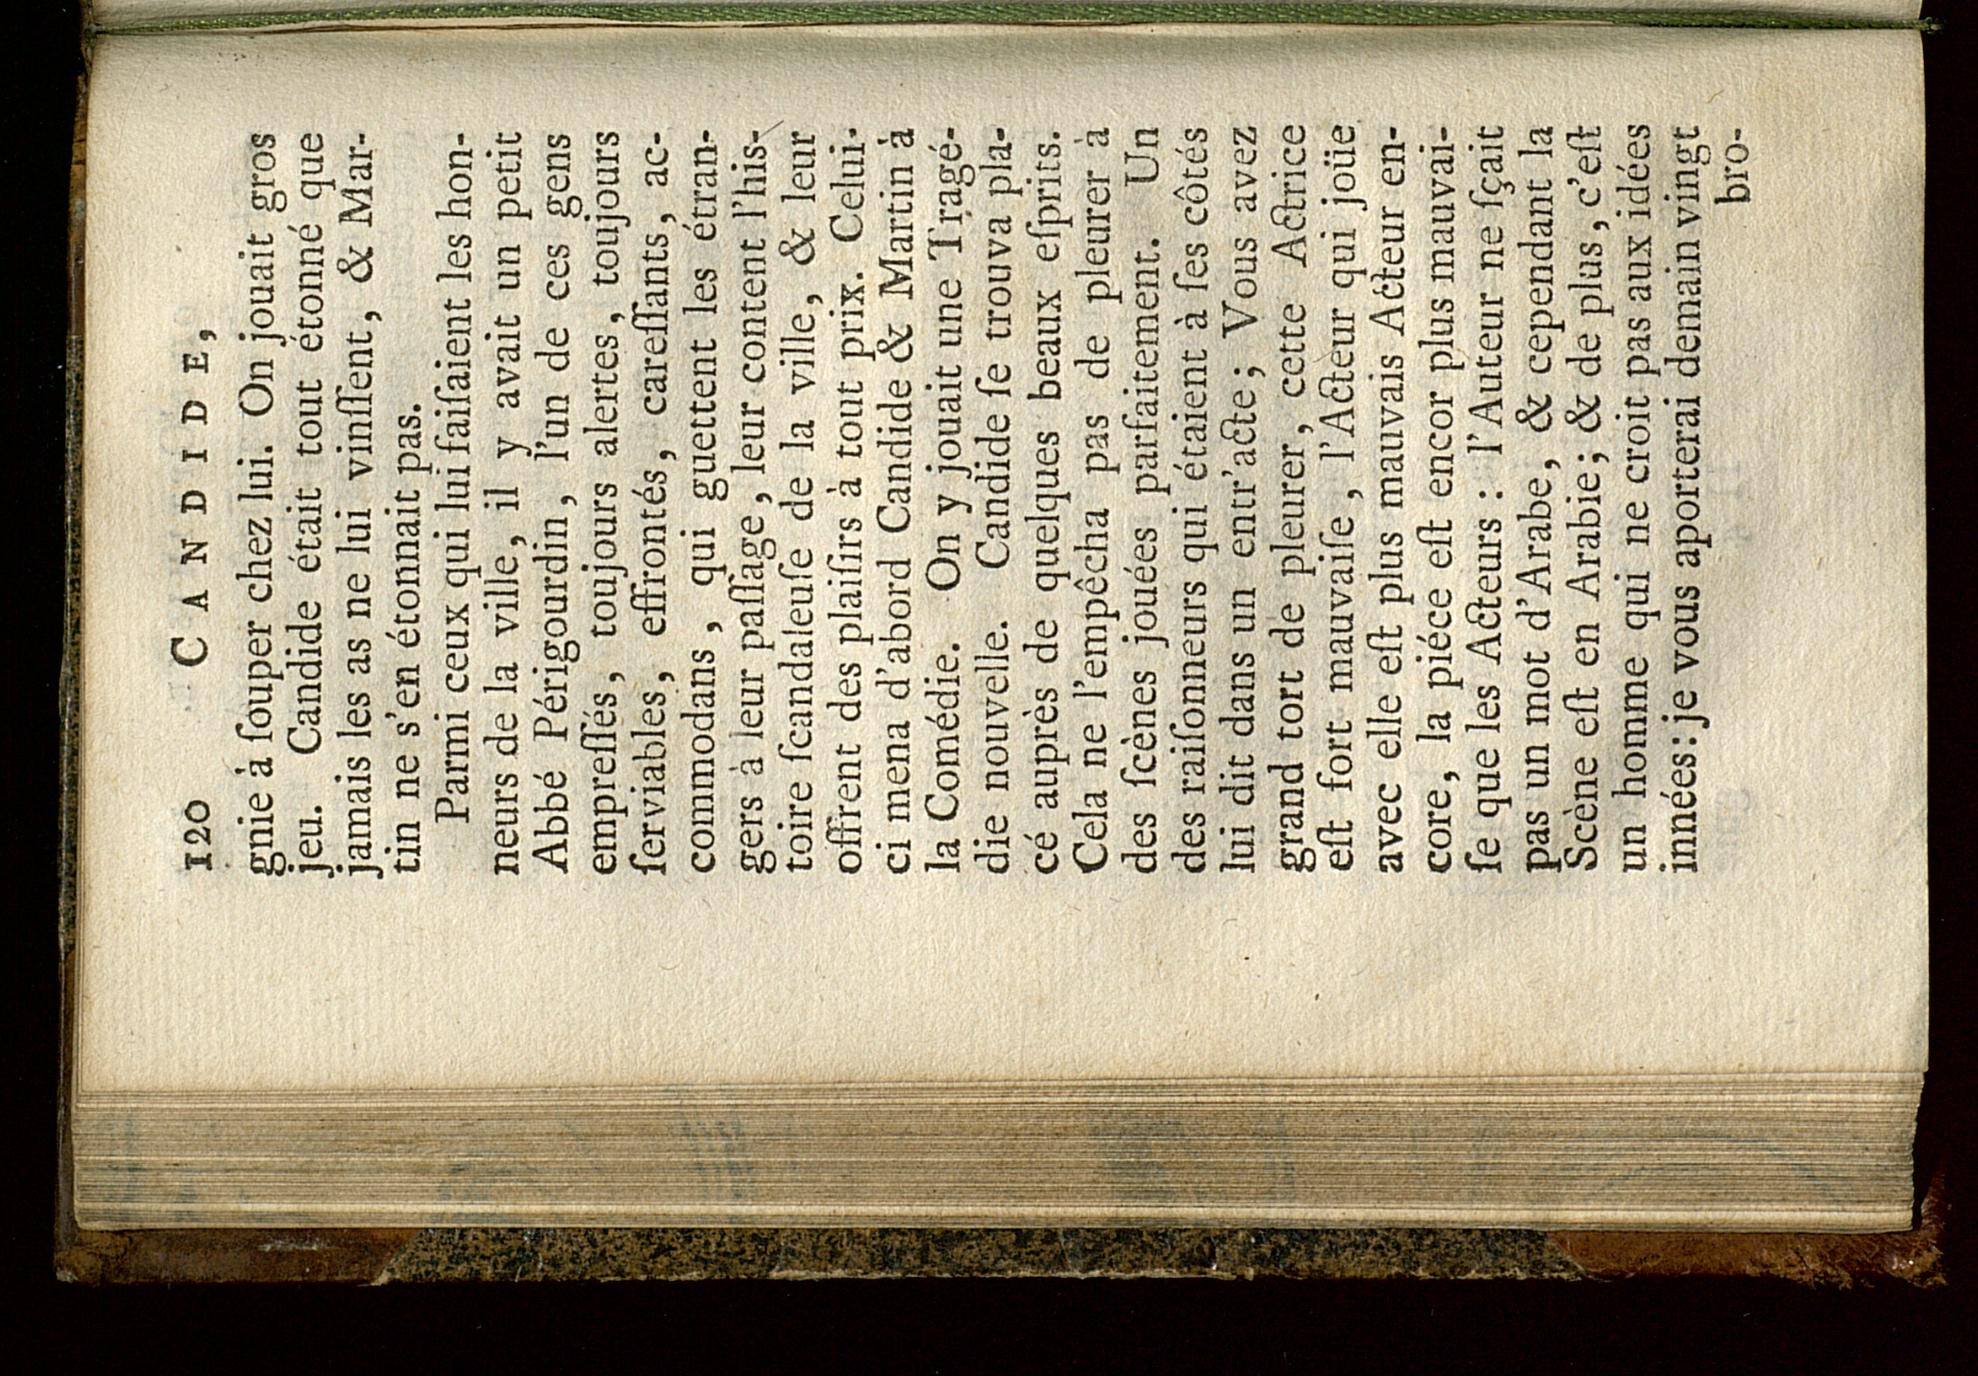 120 CANDIDE,
gnie à ſouper chez lui. On jouait gros
jeu. Candide était tout étonné que
jamais les as ne lui vinſſent, & Mar-
tin ne s'en étonnait pas.
Parmi ceux qui lui faiſaient les hon-
neurs de la ville, il y avait un petit
Abbé Périgourdin, l'un de ces gens
empreſſés, toujours alertes, toujours
ſerviables, effrontés, careſſants, ac-
commodans, qui guettent les étran-
gers à leur paſſage, leur content l'his-
toire ſcandaleuſe de la ville, & leur
offrent des plaiſirs à tout prix. Celui-
ci mena d'abord Candide & Martin à
la Comédie. On y jouait une Tragé-
die nouvelle. Candide ſe trouva pla-
cé auprès de quelques beaux eſprits.
Cela ne l'empêcha pas de pleurer à
des ſcènes jouées parfaitement. Un
des raiſonneurs qui étaient à ſes côtés
lui dit dans un entr'acte; Vous avez
grand tort de pleurer, cette Actrice
eſt fort mauvaiſe, l'Acteur qui joüe
avec elle eſt plus mauvais Acteur en-
core, la piéce eſt encor plus mauvai-
ſe que les Acteurs: l'Auteur ne ſçait
pas un mot d'Arabe, & cependant la
Scène eſt en Arabie; & de plus, c'eſt
un homme qui ne croit pas aux idées
innées: je vous aporterai demain vingt
bro-